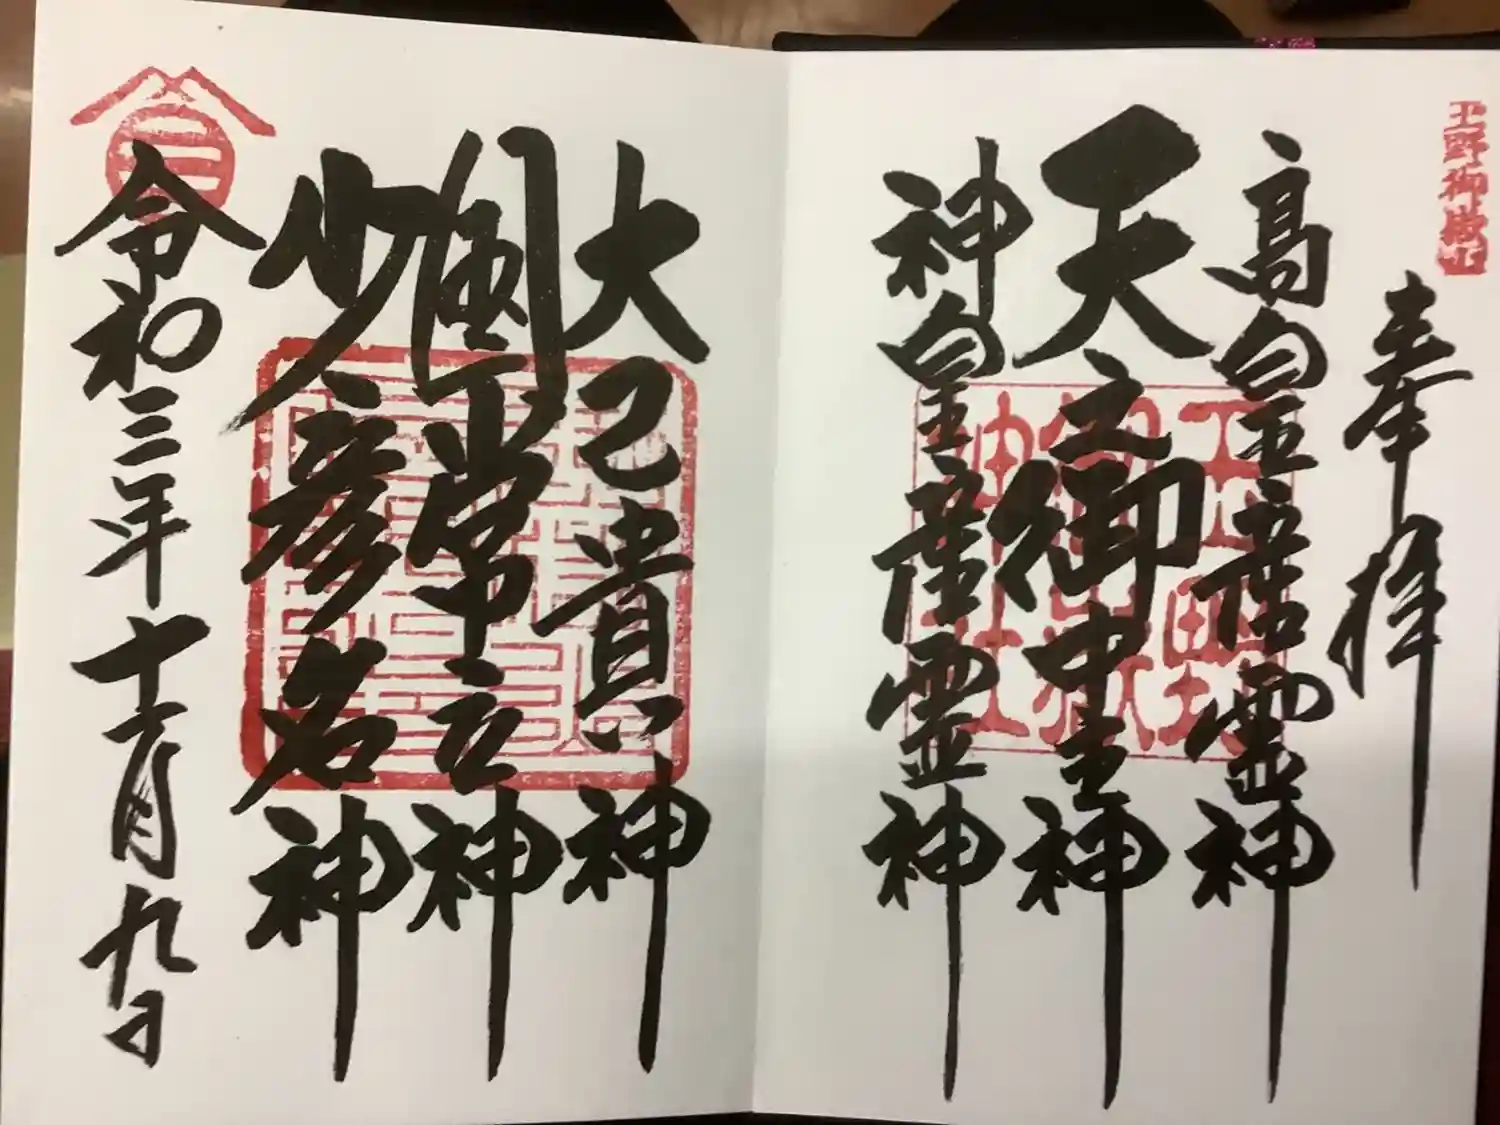 玉野御嶽山
奉拝
高皇産霊神
天之御中主神
神皇産霊神
玉野
御嶽
神社
大己貴神
国常立神
少彦名神
令和三年十一月九日